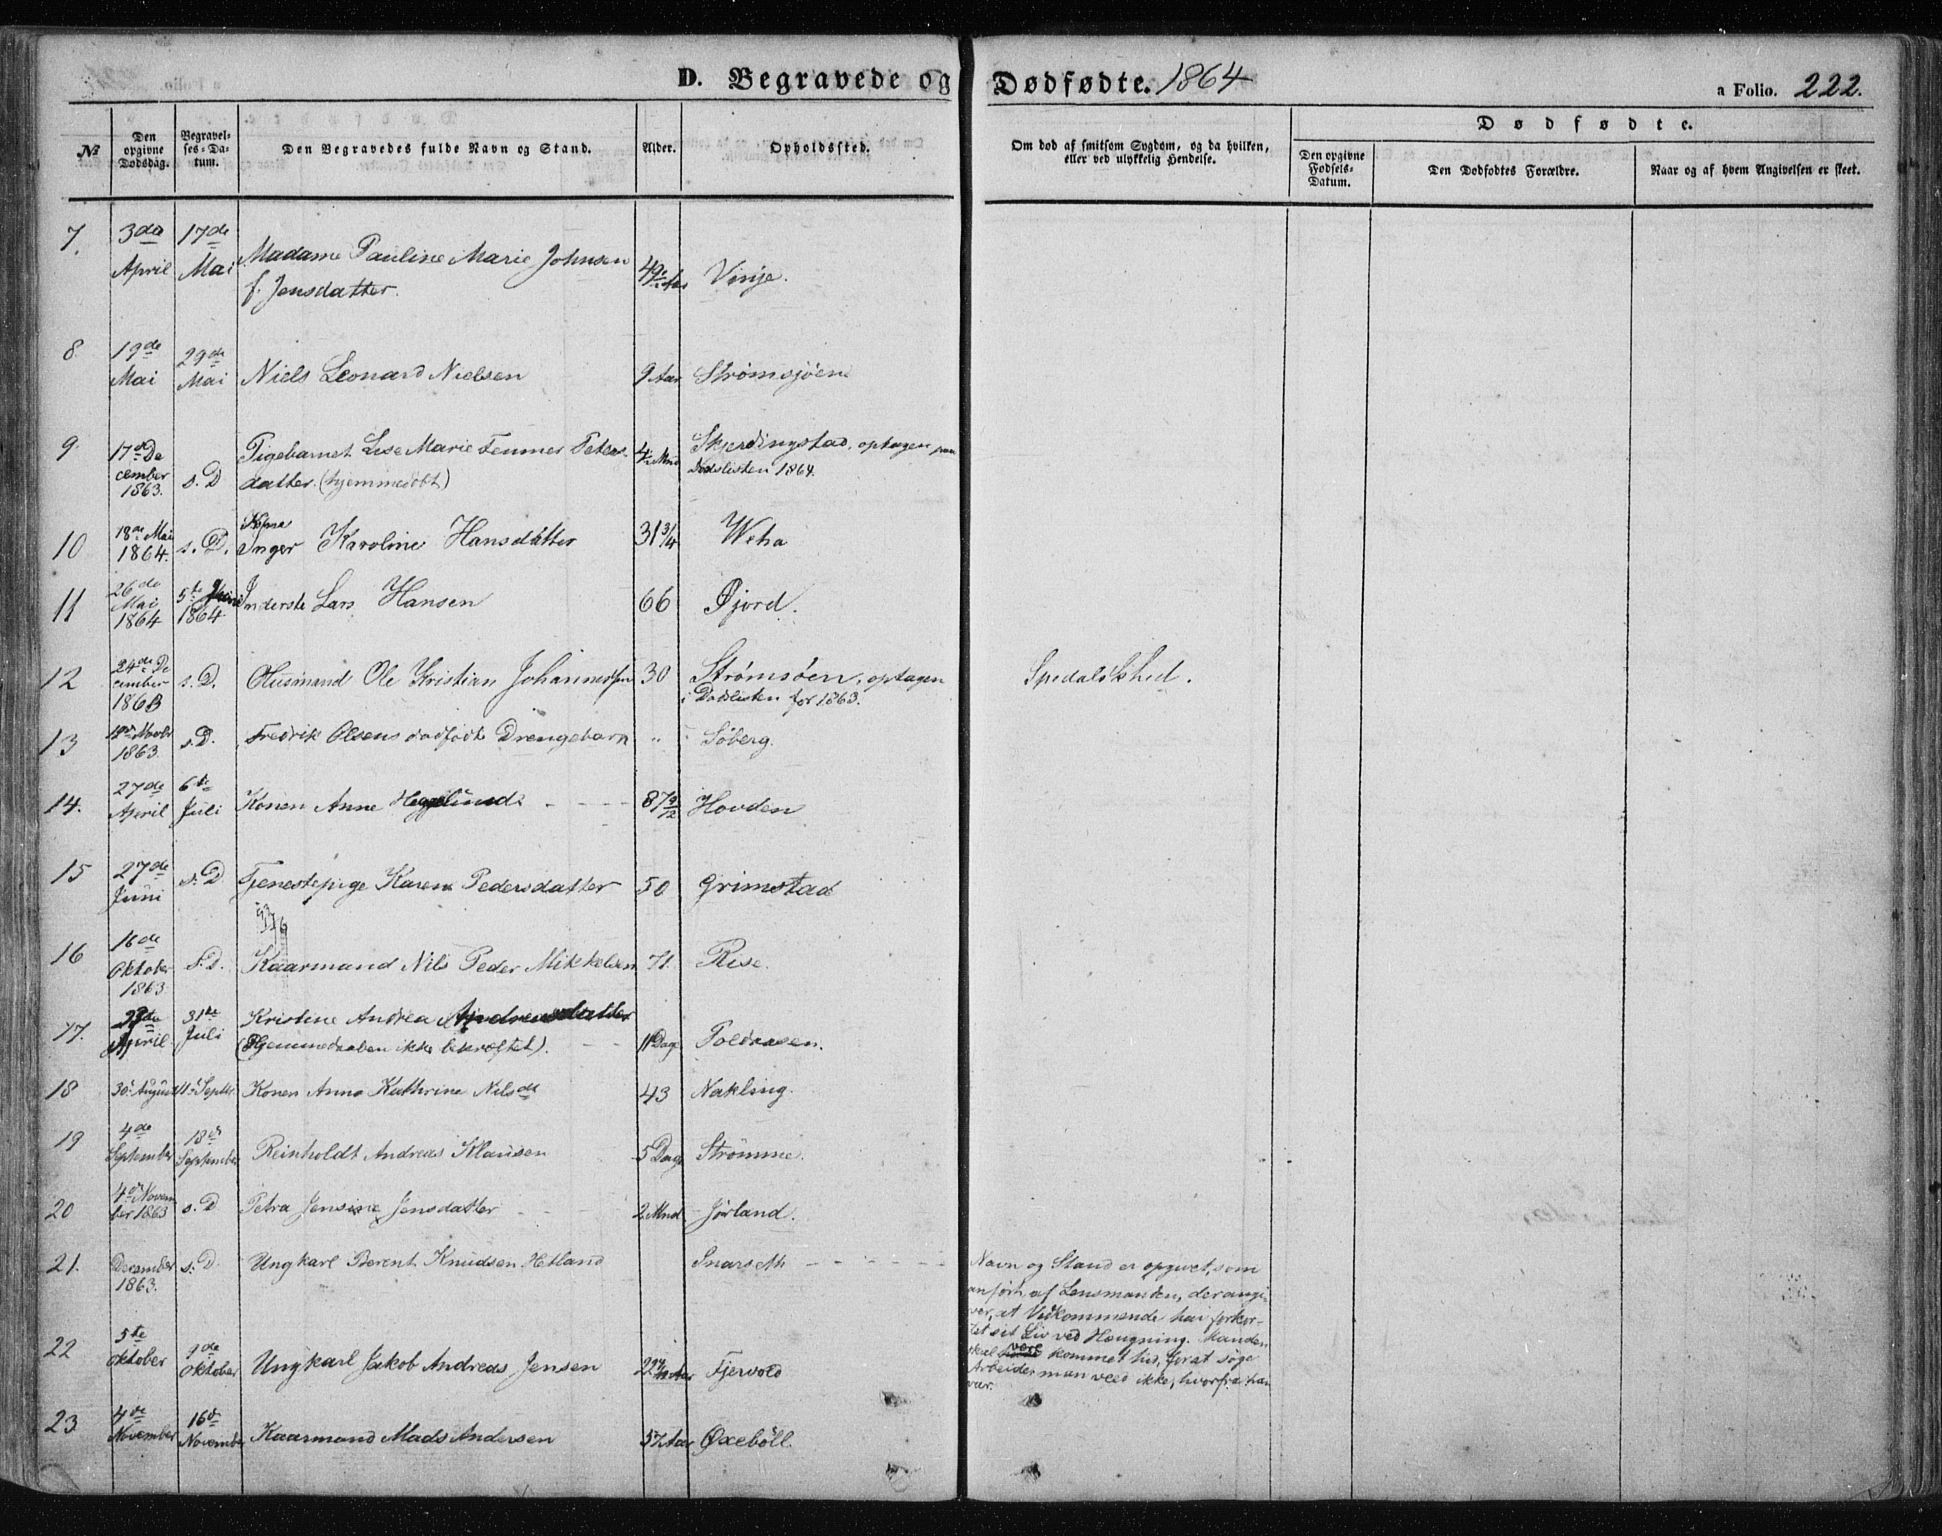 D. Begravede og Dødfødte. 1864
a Folio. 222.
№
Den opgivne Dødsdag.
Begravelses-Datum.
Den Begravedes fulde Navn og Stand.
Alder.
Opholdssted.
Om død af smitsom Sygdom, og da hvilken,
eller ved ulykkelig Hendelse.
Dødfødte.
Den opgivne Fødsels-Datum.
Den Dødfødtes Forældre.
Naar og af hvem Angivelsen er skeet.
7. 3die April 17de Mai Madame Pauline Marie Johnsen
f. Jensdatter. Vinje.
8. 19de Mai 29de Mai Niels Leonard Nielsen 9 Aar Strømsjøen
9. 17de December 1863. s. D Pigebarnet Lise Marie Peters-
datter. (hjemmedøbt) Skjerdingstad, optagen paa
Dødslisten 1864.
10 18de Mai 1864. s. D. Kone
Inger Karoline Hansdatter 31 3/4 Weha
11 26de Mai 1864 5te Juni 1864. Inderste Lars Hansen 66 Øjord.
12 24de December 1863 s. D. Husmand Ole Kristian Johannessen 30 Strømsøen, optagen
i Dødslisten for 1863. Spedalskhed.
13 1863. s. D. Fredrik Olsens dødfødte Drengebarn " Søberg.
14. 27de April 6te Juli Konen Anne Hegglund 87 Hovden
15 27de Juni s. D Tjenestepige Karen Pedersdatter 50 Grimstad
16 16de Oktober 1863 s. D. Kaarmand Nils Peder Mikkelsen 71. Rise.
17. April 31te Juli Kristine Andrea Andreasdatter
(Hjemmedaaben ikke bekræftet). 11 Dage
18 30. August 11. Septbr. Konen Anna Kathrine Nilsdt 43 Nakling.
19 4de September 18de September Reinholdt Andreas Klausen 5 Dage Strømme.
20 4de November 1863 s. D Petra Jensine Jensdatter 2 Mnd Jørland.
21. December 1863. s. D. Ungkarl Berent Knudsen Hetland Snarseth
Navn og Stand er opgivet, som
anført, af Lensmanden, der angi-
ver, at Vedkommende har forkor-
tet sit Liv ved Hængning. Manden
skal være kommet hid, for at søge
Arbeide, man veed ikke, hvorfra han
var.
22 5te Oktober 9de Oktober Ungkarl Jakob Andreas Jensen Fjervold
23 4de November 16de November Kaarmand Mads Andersen 57 Aar Øxebøll.